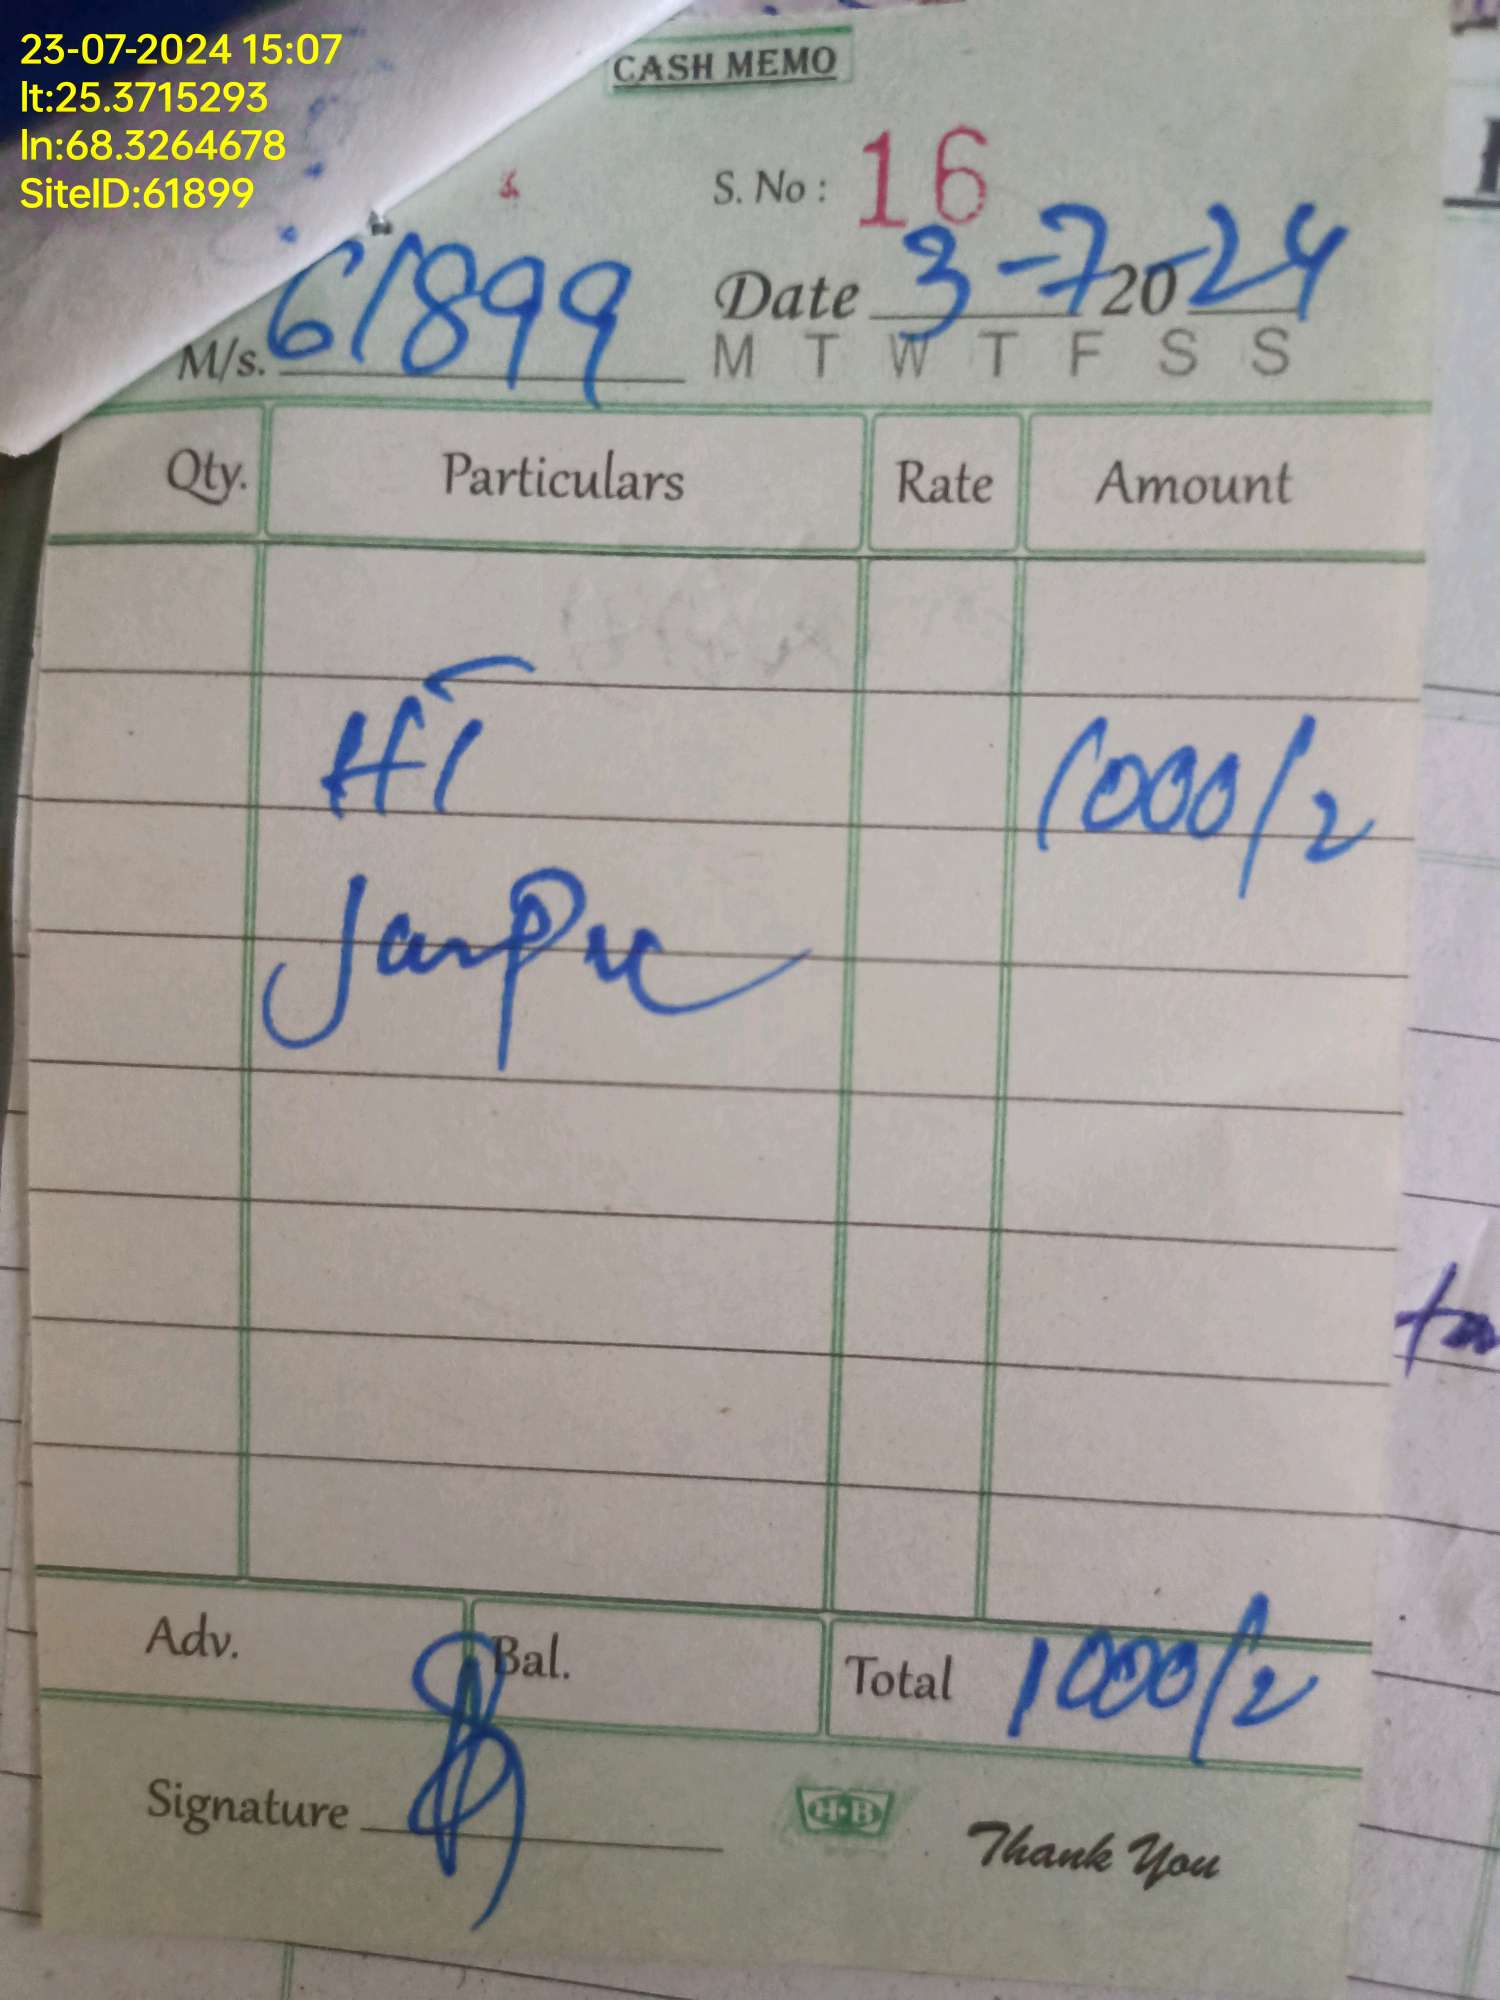 23-07-2024 15:07
lt:25.3715293
ln:68.3264678
SiteID:61899
CASH MEMO
S. No : 16
M/s. 61899
Date 3-7 2024
M T W T F S S
Qty. Particulars Rate Amount
1000/2
Adv. Bal. Total 1000/2
Signature
H·B
Thank You